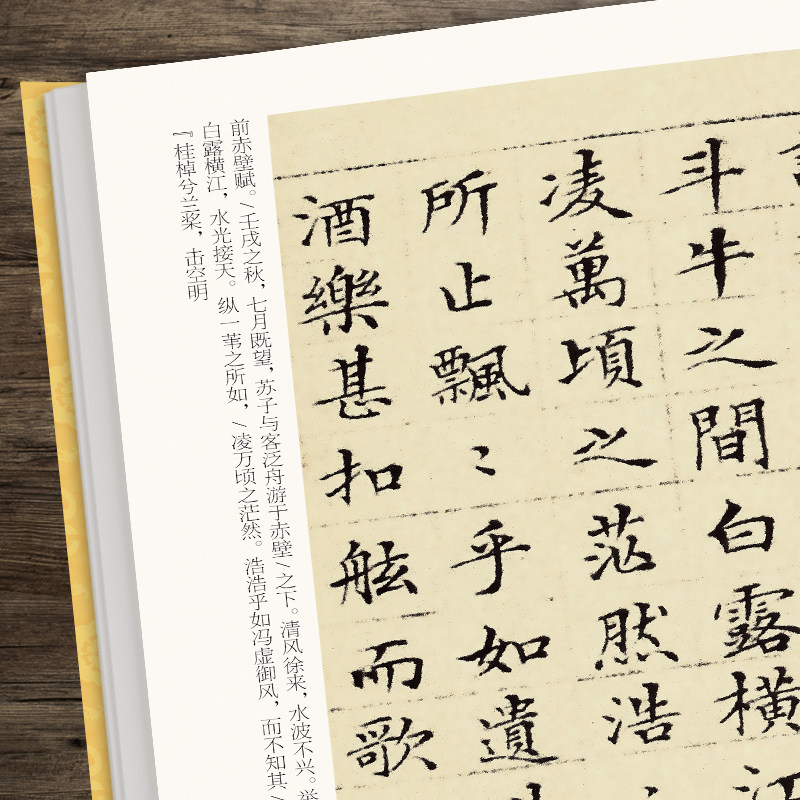 斗牛之間白露橫江
凌萬頃之茫然浩
所止飄〻乎如遺
酒樂甚扣舷而歌
前赤壁赋。/壬戌之秋，七月既望，苏子与客泛舟游于赤壁/之下。清风徐来，水波不兴。举
白露横江，水光接天。纵一苇之所如，/凌万顷之茫然。浩浩乎如冯虚御风，而不知其/
『桂棹兮兰桨，击空明